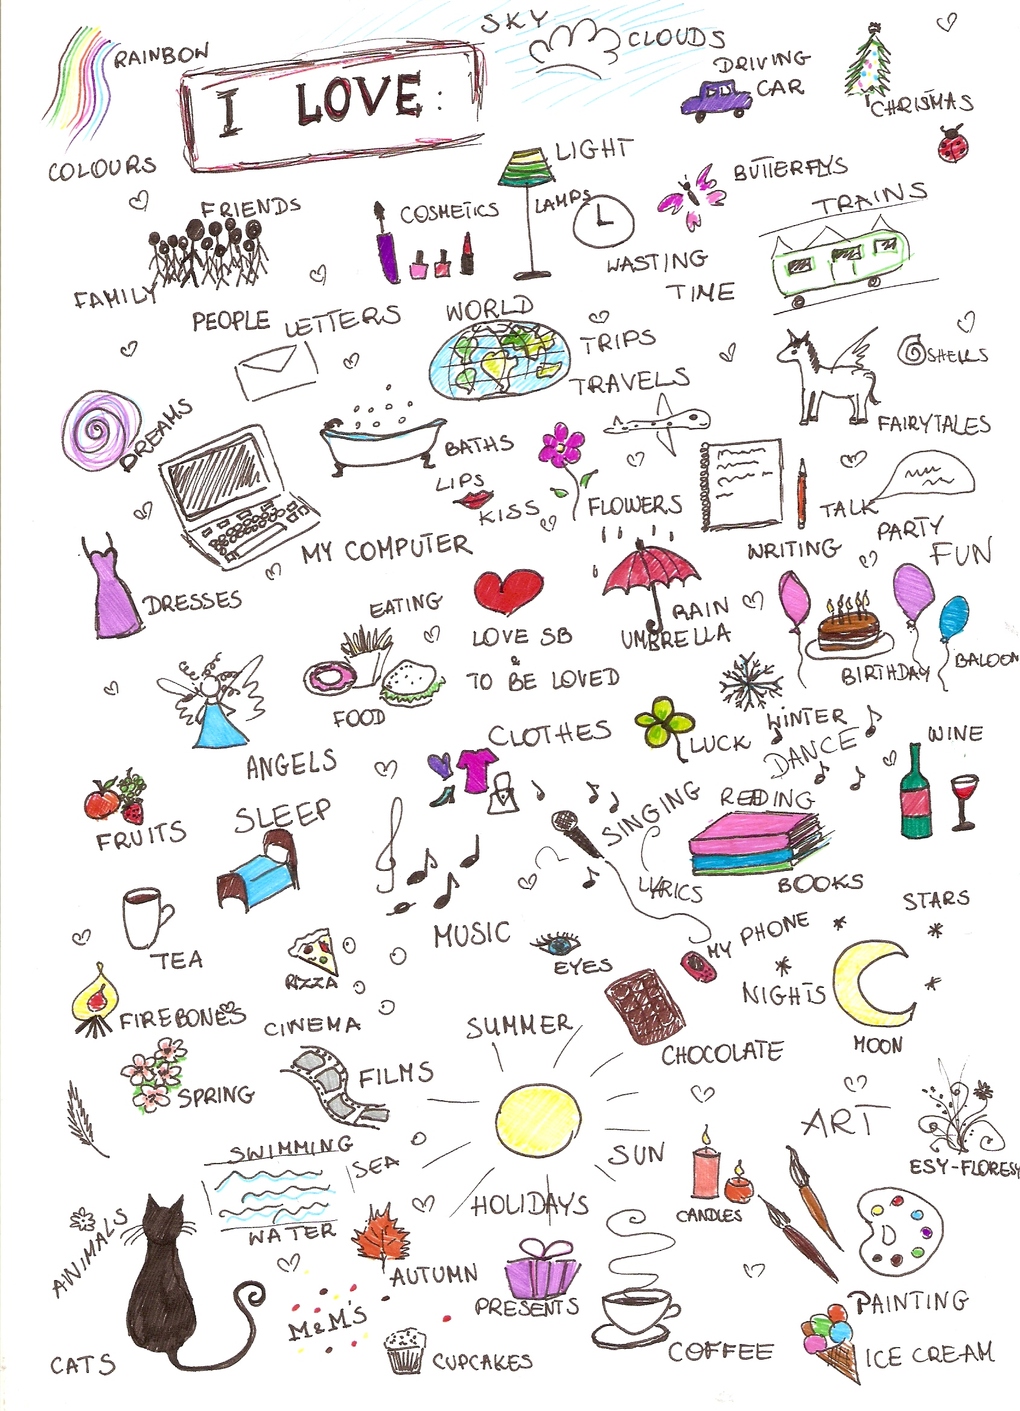 SKY
RAINBOW
CLOUDS
I LOVE:
DRIVING
CAR
CHRISMAS
COLOURS
LIGHT
LAMPS
BUTTERFLYS
FRIENDS
COSMETICS
TRAINS
WASTING
TIME
FAMILY
PEOPLE
LETTERS
WORLD
TRIPS
SHELLS
TRAVELS
DREAMS
FAIRYTALES
BATHS
LIPS
KISS
FLOWERS
TALK
PARTY
FUN
MY COMPUTER
WRITING
DRESSES
EATING
RAIN
UMBRELLA
LOVE SB
&
TO BE LOVED
BIRTHDAY
BALOON
FOOD
WINTER
ANGELS
CLOTHES
LUCK
DANCE
WINE
FRUITS
SLEEP
SINGING
READING
LYRICS
BOOKS
STARS
TEA
MUSIC
EYES
MY PHONE
PIZZA
NIGHTS
FIREBONES
CINEMA
SUMMER
CHOCOLATE
MOON
SPRING
FILMS
ART
SWIMMING
SEA
SUN
ESY-FLORESY
CANDLES
ANIMALS
WATER
HOLIDAYS
AUTUMN
PRESENTS
PAINTING
M&M'S
CATS
CUPCAKES
COFFEE
ICE CREAM